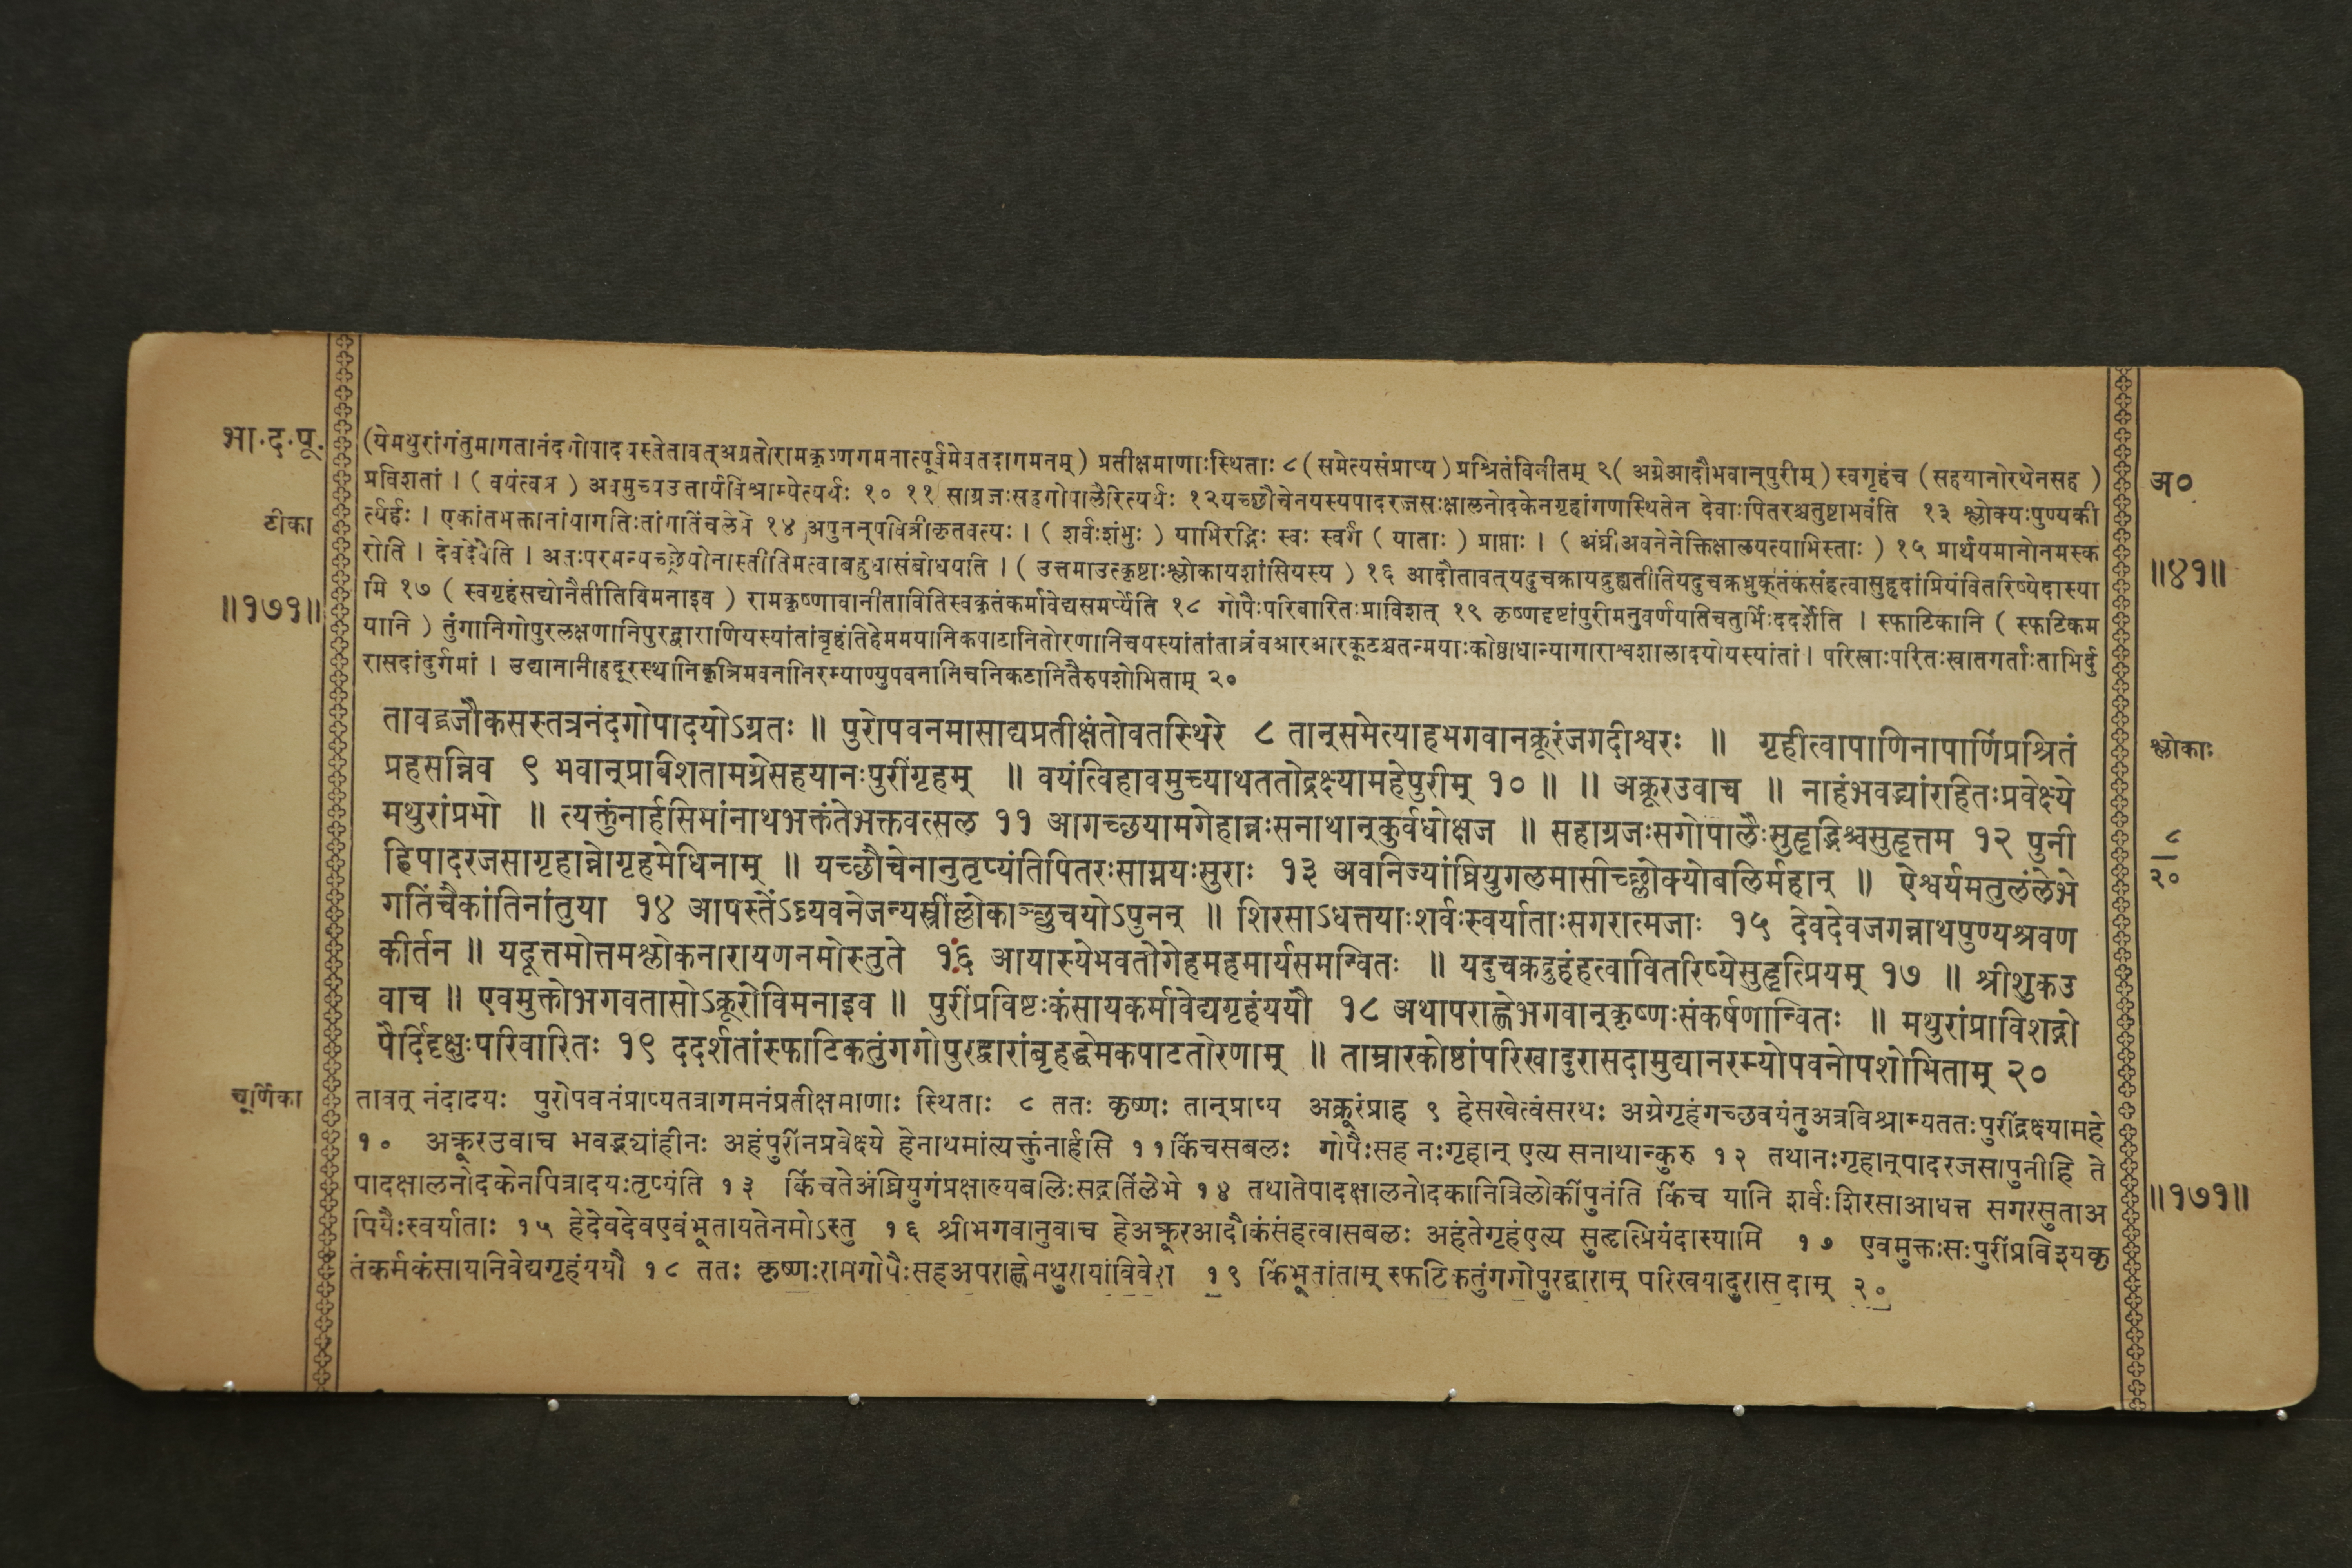 भा.द.पू.
टीका
॥१७१॥
(येमथुरांगंतुमागतानंदगोपादयस्तेतावत्अग्रतोरामकृष्णगमनात्पूर्वमेवतदागमनम्) प्रतीक्षमाणाःस्थिताः ८ (समेत्यसंप्राप्य) प्रश्रितंविनीतम् ९ ( अग्रेआदौभवान्पुरीम्) स्वगृहंच (सहयानोरथेनसह )
प्रविशतां । ( वयंत्वत्र ) अवमुच्यउत्तार्यविश्राम्येत्यर्थः १० ११ साग्रजःसहगोपालैरित्यर्थः १२यच्छौचेनयस्यपादरजसःक्षालनोदकेनगृहांगणस्थितेन देवाःपितरश्चतुष्टाभवंति १३ श्लोक्यःपुण्यकी
र्त्यर्हः । एकांतभक्तानांयागतिःतांगतिंचलेभे १४ अपुनन्पवित्रीकृतवत्यः । ( शर्वःशंभुः ) याभिरद्भिः स्वः स्वर्गं ( याताः ) प्राप्ताः । ( अंघ्रीअवनेनेक्तिक्षालयत्याभिस्ताः ) १५ प्रार्थयमानोनमस्क
रोति । देवदेवेति । अतःपरमन्यच्छ्रेयोनास्तीतिमत्वाबहुधासंबोधयति । ( उत्तमाउत्कृष्टाःश्लोकायशांसियस्य ) १६ आदौतावत्यदुचक्रायद्रुह्यतीतियदुचक्रध्रुक्तंकंसंहत्वासुहृदांप्रियंवितरिष्येदास्या
मि १७ ( स्वगृहंसद्योनैतीतिविमनाइव ) रामकृष्णावानीतावितिस्वकृतंकर्मावेद्यसमर्प्येति १८ गोपैःपरिवारितःप्राविशत् १९ कृष्णदृष्टांपुरीमनुवर्णयतिचतुर्भिःददर्शेति । स्फाटिकानि ( स्फटिकम
यानि ) तुंगानिगोपुरलक्षणानिपुरद्वाराणियस्यांतांबृहंतिहेममयानिकपाटानितोरणानिचयस्यांतांताम्रंवआरआरकूटश्चतन्मयाःकोष्ठाधान्यागाराश्वशालादयोयस्यांतां । परिखाःपरितःखातगर्ताःताभिर्दु
रासदांदुर्गमां । उद्यानानीहदूरस्थानिकृत्रिमवनानिरम्याण्युपवनानिचनिकटानितैरुपशोभिताम् २०
तावद्व्रजौकसस्तत्रनंदगोपादयोऽग्रतः ॥ पुरोपवनमासाद्यप्रतीक्षंतोवतस्थिरे ८ तान्समेत्याहभगवानक्रूरंजगदीश्वरः ॥ गृहीत्वापाणिनापाणिंप्रश्रितं
प्रहसन्निव ९ भवान्प्रविशतामग्रेसहयानःपुरींगृहम् ॥ वयंत्विहावमुच्याथततोद्रक्ष्यामहेपुरीम् १० ॥ ॥ अक्रूरउवाच ॥ नाहंभवद्भ्यांरहितःप्रवेक्ष्ये
मथुरांप्रभो ॥ त्यक्तुंनार्हसिमांनाथभक्तंतेभक्तवत्सल ११ आगच्छयामगेहान्नःसनाथान्कुर्वधोक्षज ॥ सहाग्रजःसगोपालैःसुहृद्भिश्चसुहृत्तम १२ पुनी
हिपादरजसागृहान्नोगृहमेधिनाम् ॥ यच्छौचेनानुतृप्यंतिपितरःसाग्नयःसुराः १३ अवनिज्यांघ्रियुगलमासीच्छ्लोक्योबलिर्महान् ॥ ऐश्वर्यमतुलंलेभे
गतिंचैकांतिनांतुया १४ आपस्तेंऽघ्र्यवनेजन्यस्त्रींल्लोकाञ्छुचयोऽपुनन् ॥ शिरसाऽधत्तयाःशर्वःस्वर्याताःसगरात्मजाः १५ देवदेवजगन्नाथपुण्यश्रवण
कीर्तन ॥ यदूत्तमोत्तमश्लोकनारायणनमोस्तुते १६ आयास्येभवतोगेहमहमार्यसमन्वितः ॥ यदुचक्रद्रुहंहत्वावितरिष्येसुहृत्प्रियम् १७ ॥ श्रीशुकउ
वाच ॥ एवमुक्तोभगवतासोऽक्रूरोविमनाइव ॥ पुरींप्रविष्टःकंसायकर्मावेद्यगृहंययौ १८ अथापराह्णेभगवान्कृष्णःसंकर्षणान्वितः ॥ मथुरांप्राविशद्गो
पैर्दिदृक्षुःपरिवारितः १९ ददर्शतांस्फाटिकतुंगगोपुरद्वारांबृहद्धेमकपाटतोरणाम् ॥ ताम्रारकोष्ठांपरिखादुरासदामुद्यानरम्योपवनोपशोभिताम् २०
चूर्णिका
तावत् नंदादयः पुरोपवनंप्राप्यतत्रागमनंप्रतीक्षमाणाः स्थिताः ८ ततः कृष्णः तान्प्राप्य अक्रूरंप्राह ९ हेसखेत्वंसरथः अग्रेगृहंगच्छवयंतुअत्रविश्राम्यततःपुरींद्रक्ष्यामहे
१० अक्रूरउवाच भवद्भ्यांहीनः अहंपुरींनप्रवेक्ष्ये हेनाथमांत्यक्तुंनार्हसि ११किंचसबलः गोपैःसह नःगृहान् एत्य सनाथान्कुरु १२ तथानःगृहान्पादरजसापुनीहि ते
पादक्षालनोदकेनपित्रादयःतृप्यंति १३ किंचतेअंघ्रियुगंप्रक्षाल्यबलिःसद्गतिंलेभे १४ तथातेपादक्षालनोदकानित्रिलोकींपुनंति किंच यानि शर्वःशिरसाआधत्त सगरसुताअ
पियैःस्वर्याताः १५ हेदेवदेवएवंभूतायतेनमोऽस्तु १६ श्रीभगवानुवाच हेअक्रूरआदौकंसंहत्वासबलः अहंतेगृहंएत्य सुहृत्प्रियंदास्यामि १७ एवमुक्तःसःपुरींप्रविश्यकृ
तंकर्मकंसायनिवेद्यगृहंययौ १८ ततः कृष्णःरामगोपैःसहअपराह्णेमथुरायांविवेश १९ किंभूतांताम् स्फटिकतुंगगोपुरद्वाराम् परिखयादुरासदाम् २०
अ०
॥४१॥
श्लोकाः
८
२०
॥१७१॥